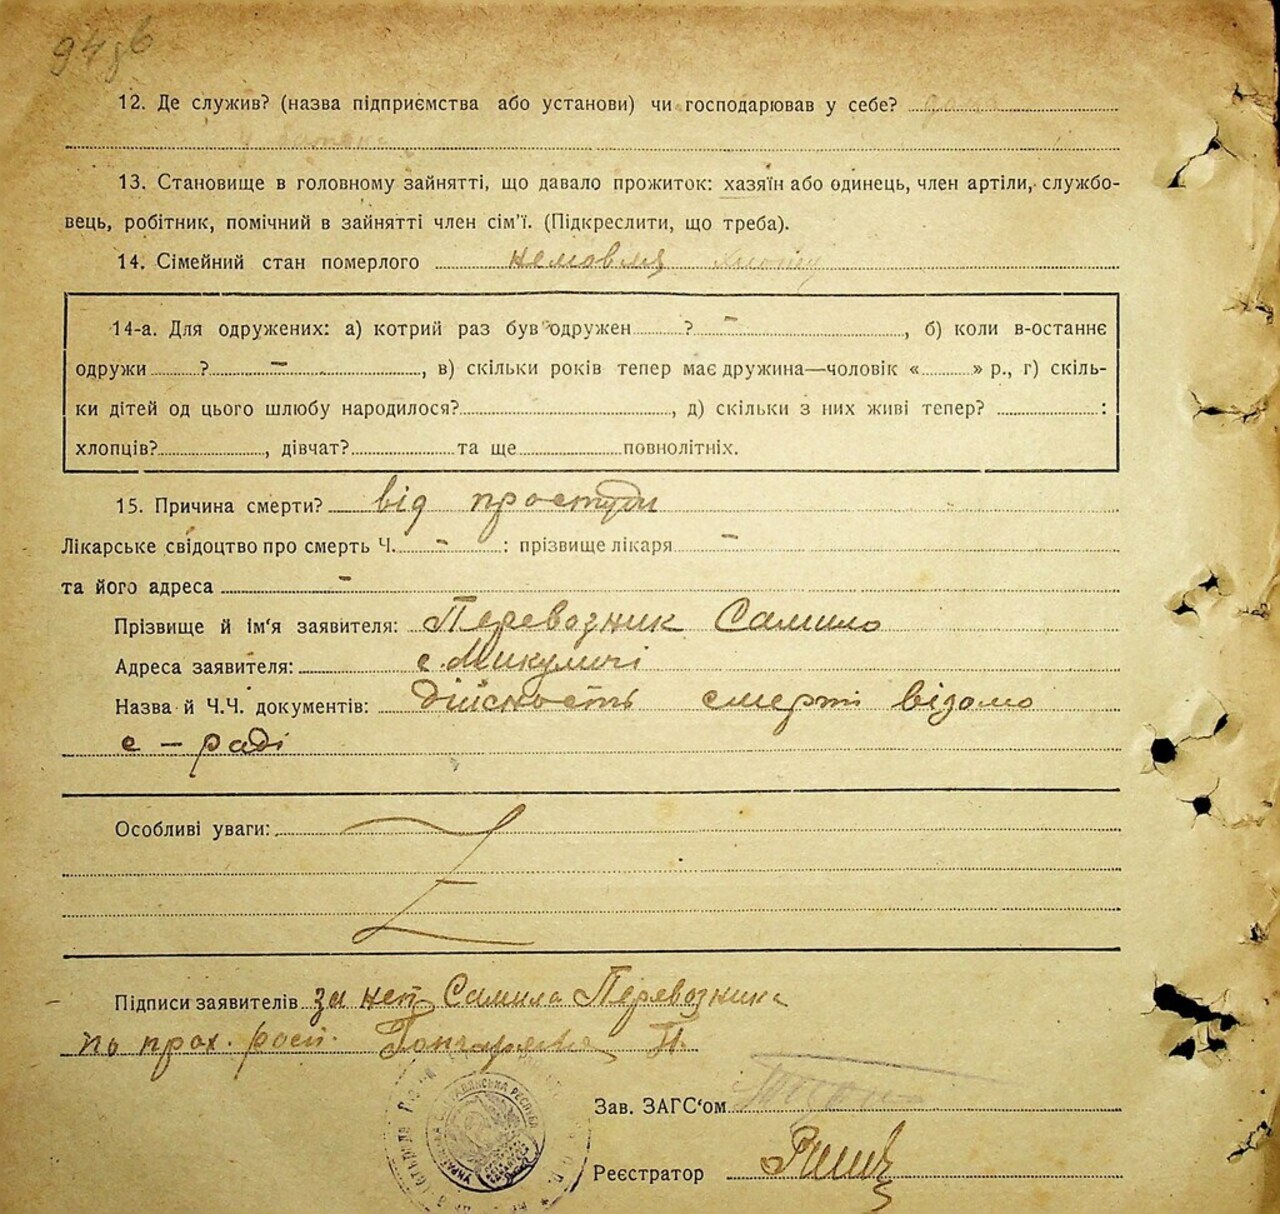 94 зв
12. Де служив? (назва підприємства або установи) чи господарював у себе?
13. Становище в головному зайнятті, що давало прожиток: хазяїн або одинець, член артіли, службо-
вець, робітник, помічний в зайнятті член сім'ї. (Підкреслити, що треба).
14. Сімейний стан померлого немовля
14-а. Для одружених: а) котрий раз був одружен ? –, б) коли в-останнє
одружи ? –, в) скільки років тепер має дружина—чоловік « » р., г) скіль-
ки дітей од цього шлюбу народилося? , д) скільки з них живі тепер? :
хлопців? , дівчат? та ще повнолітніх.
15. Причина смерти? від простуди
Лікарське свідоцтво про смерть Ч. - : прізвище лікаря -
та його адреса -
Прізвище й ім'я заявителя: Перевозник Самило
Адреса заявителя: с. Микуличі
Назва й Ч.Ч. документів: Дійсность смерті відомо
с – раді
Особливі уваги:
Підписи заявителів за неп Самила Перевозника
по прох. росп. Гончаренко П.
Зав. ЗАГС'ом
Реєстратор